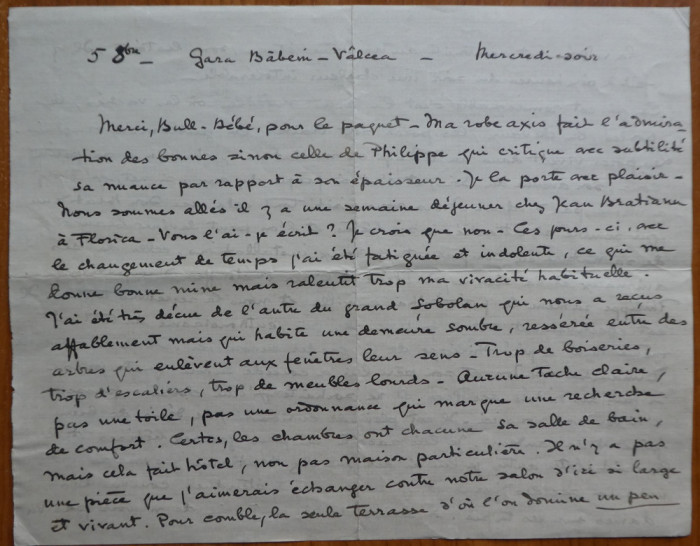 5 8bre - Gara Băbeni - Vâlcea - Mercredi-soir
Merci, Bull-Bébé, pour le paquet - Ma robe axis fait l'admira-
tion des bonnes sinon celle de Philippe qui critique avec subtilité
sa nuance par rapport à son épaisseur. Je la porte avec plaisir -
Nous sommes allés il y a une semaine déjeuner chez Jean Bratianu
à Florica - Vous l'ai-je écrit ? Je crois que non - Ces jours-ci, avec
le changement de temps j'ai été fatiguée et indolente, ce qui me
donne bonne mine mais ralentit trop ma vivacité habituelle.
J'ai été très déçue de l'antre du grand Sobolan qui nous a reçus
affablement mais qui habite une demeure sombre, ressérée entre des
arbres qui enlèvent aux fenêtres leur sens - Trop de boiseries,
trop d'escaliers, trop de meubles lourds - Aucune tache claire,
pas une toile, pas une ordonnance qui marque une recherche
de comfort. Certes, les chambres ont chacune sa salle de bain,
mais cela fait hôtel, non pas maison particulière. Il n'y a pas
une pièce que j'aimerais échanger contre notre salon d'ici si large
et vivant. Pour comble, la seule terrasse d'où l'on domine un peu